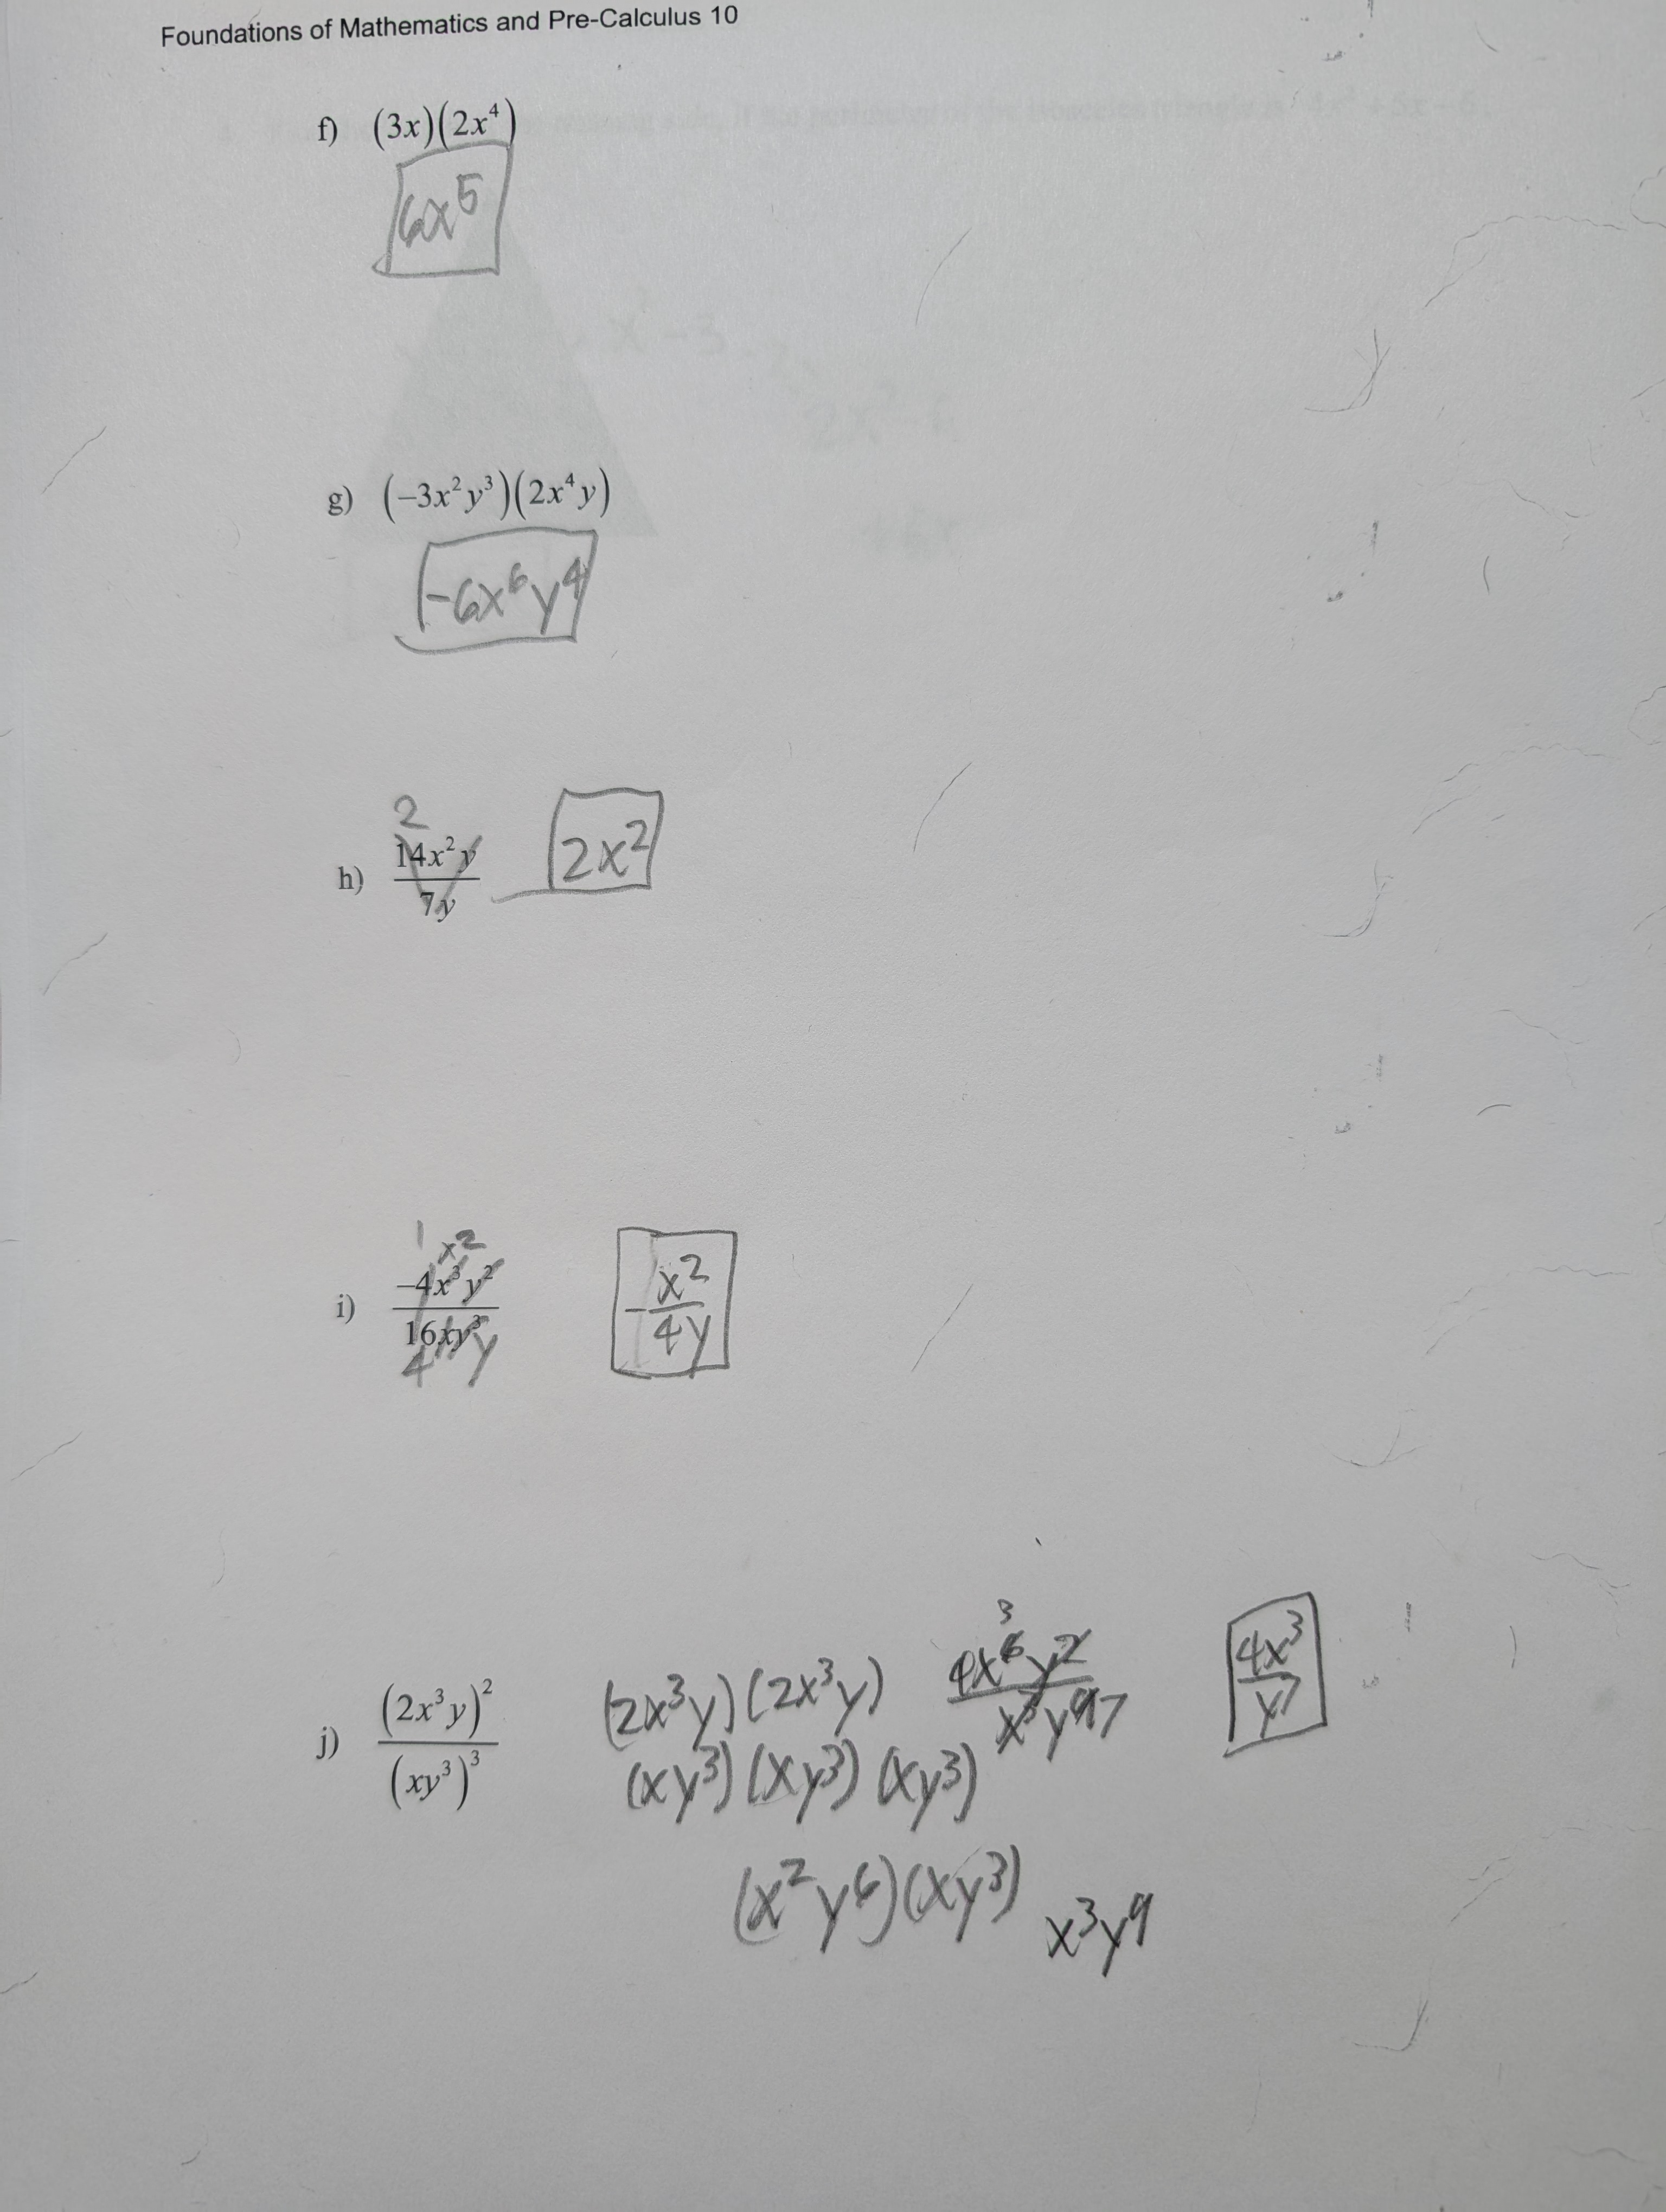 Foundations of Mathematics and Pre-Calculus 10
f) (3x)(2x⁴)
6x⁵
g) (–3x²y³)(2x⁴y)
-6x⁶y⁴
2
h) 14x²y / 7y 2x²
1 x²
i) –4x³y² / 16xy³ - x² / 4y
4 y
3
j) (2x³y)² / (xy³)³ (2x³y)(2x³y) 4x⁶y² / x³y⁹ 7 4x³ / y⁷
(xy³)(xy³)(xy³)
(x²y⁶)(xy³) x³y⁹